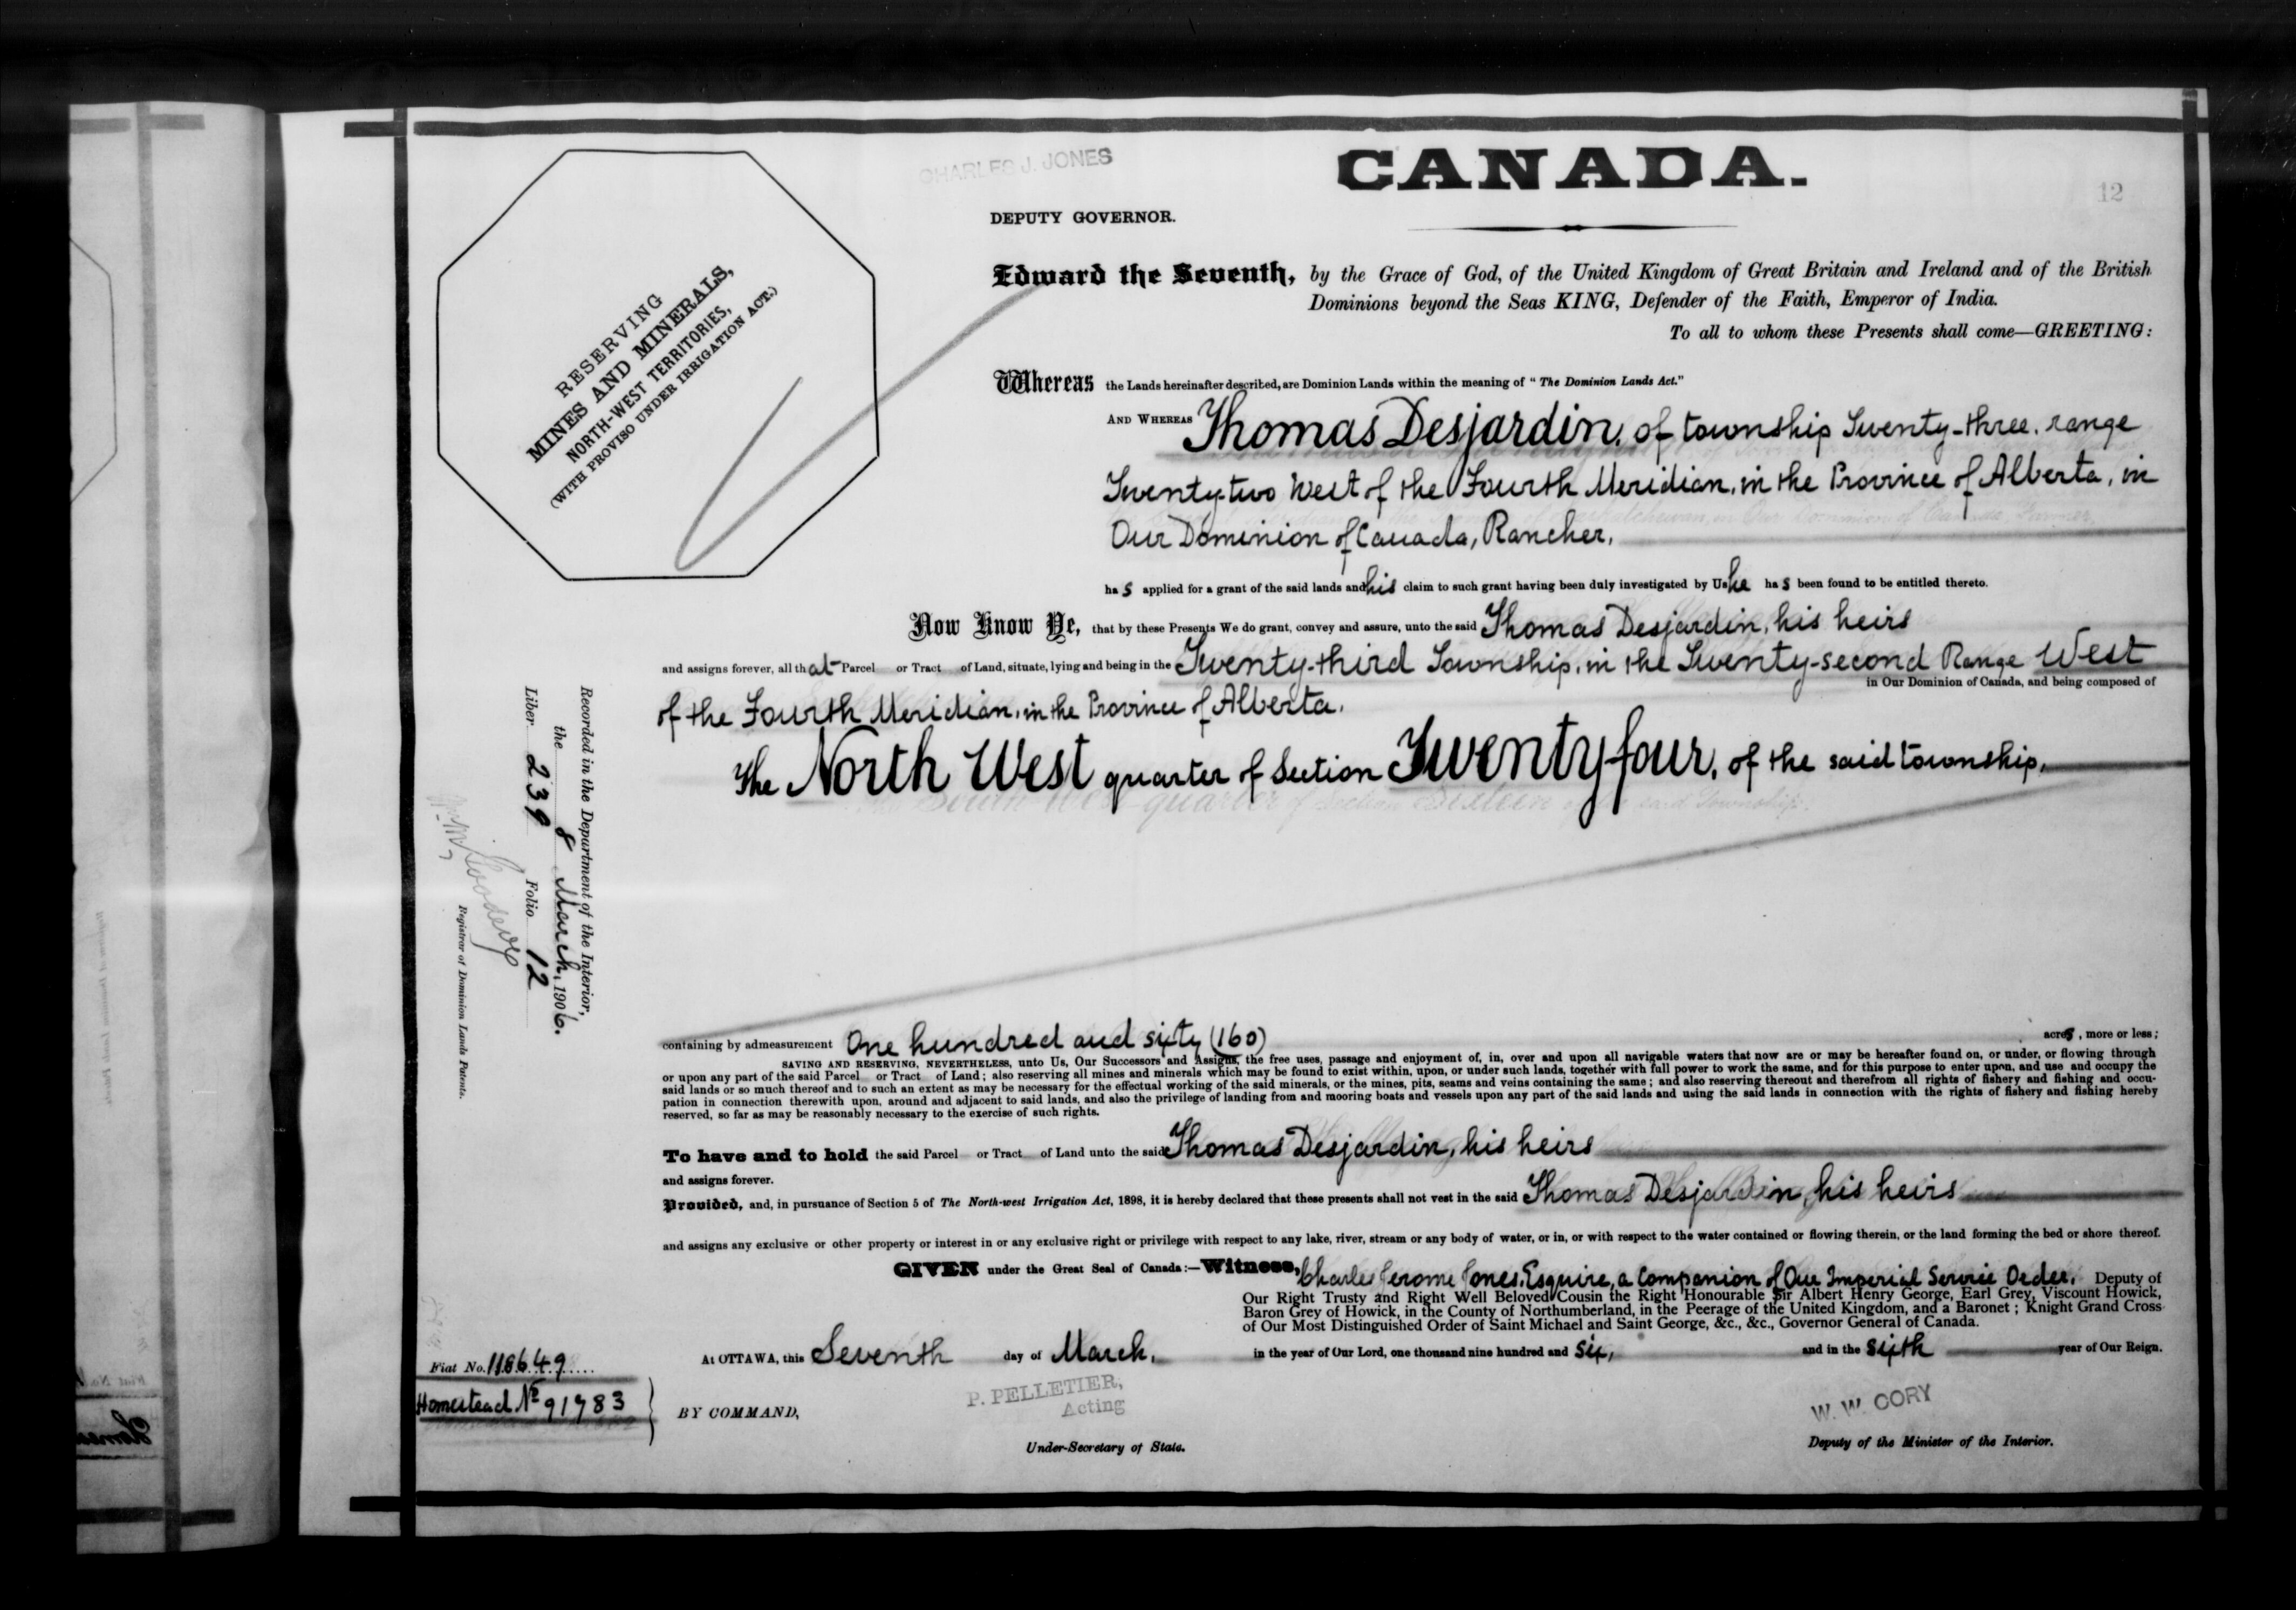 CHARLES J. JONES
CANADA.
12
DEPUTY GOVERNOR.
RESERVING
MINES AND MINERALS,
NORTH-WEST TERRITORIES,
(WITH PROVISO UNDER IRRIGATION ACT.)
Edward the Seventh, by the Grace of God, of the United Kingdom of Great Britain and Ireland and of the British
Dominions beyond the Seas KING, Defender of the Faith, Emperor of India.
To all to whom these Presents shall come—GREETING:
Whereas the Lands hereinafter described, are Dominion Lands within the meaning of "The Dominion Lands Act."
AND WHEREAS Thomas Desjardin, of township Twenty-three, range
Twenty-two West of the Fourth Meridian, in the Province of Alberta, in
Our Dominion of Canada, Rancher,
has applied for a grant of the said lands and his claim to such grant having been duly investigated by Us he has been found to be entitled thereto.
Now Know Ye, that by these Presents We do grant, convey and assure, unto the said Thomas Desjardin, his heirs
and assigns forever, all that Parcel or Tract of Land, situate, lying and being in the Twenty-third Township, in the Twenty-second Range West
in Our Dominion of Canada, and being composed of
of the Fourth Meridian, in the Province of Alberta.
The North West quarter of Section Twenty four, of the said township,
Recorded in the Department of the Interior,
the 8 March, 1906.
Liber 239 Folio 12
Registrar of Dominion Lands Patents.
containing by admeasurement One hundred and sixty (160) acres, more or less;
SAVING AND RESERVING, NEVERTHELESS, unto Us, Our Successors and Assigns, the free uses, passage and enjoyment of, in, over and upon all navigable waters that now are or may be hereafter found on, or under, or flowing through
or upon any part of the said Parcel or Tract of Land; also reserving all mines and minerals which may be found to exist within, upon, or under such lands, together with full power to work the same, and for this purpose to enter upon, and use and occupy the
said lands or so much thereof and to such an extent as may be necessary for the effectual working of the said minerals, or the mines, pits, seams and veins containing the same; and also reserving thereout and therefrom all rights of fishery and fishing and occu-
pation in connection therewith upon, around and adjacent to said lands, and also the privilege of landing from and mooring boats and vessels upon any part of the said lands and using the said lands in connection with the rights of fishery and fishing hereby
reserved, so far as may be reasonably necessary to the exercise of such rights.
To have and to hold the said Parcel or Tract of Land unto the said Thomas Desjardin, his heirs
and assigns forever.
Provided, and, in pursuance of Section 5 of The North-west Irrigation Act, 1898, it is hereby declared that these presents shall not vest in the said Thomas Desjardin, his heirs
and assigns any exclusive or other property or interest in or any exclusive right or privilege with respect to any lake, river, stream or any body of water, or in, or with respect to the water contained or flowing therein, or the land forming the bed or shore thereof.
GIVEN under the Great Seal of Canada:—Witness, Charles Jerome Jones, Esquire, a Companion of Our Imperial Service Order, Deputy of
Our Right Trusty and Right Well Beloved Cousin the Right Honourable Sir Albert Henry George, Earl Grey, Viscount Howick,
Baron Grey of Howick, in the County of Northumberland, in the Peerage of the United Kingdom, and a Baronet; Knight Grand Cross
of Our Most Distinguished Order of Saint Michael and Saint George, &c., &c., Governor General of Canada.
At OTTAWA, this Seventh day of March, in the year of Our Lord, one thousand nine hundred and six, and in the sixth year of Our Reign.
Fiat No. 118649
Homestead No 91783
BY COMMAND,
P. PELLETIER,
Acting
Under-Secretary of State.
W. W. CORY
Deputy of the Minister of the Interior.